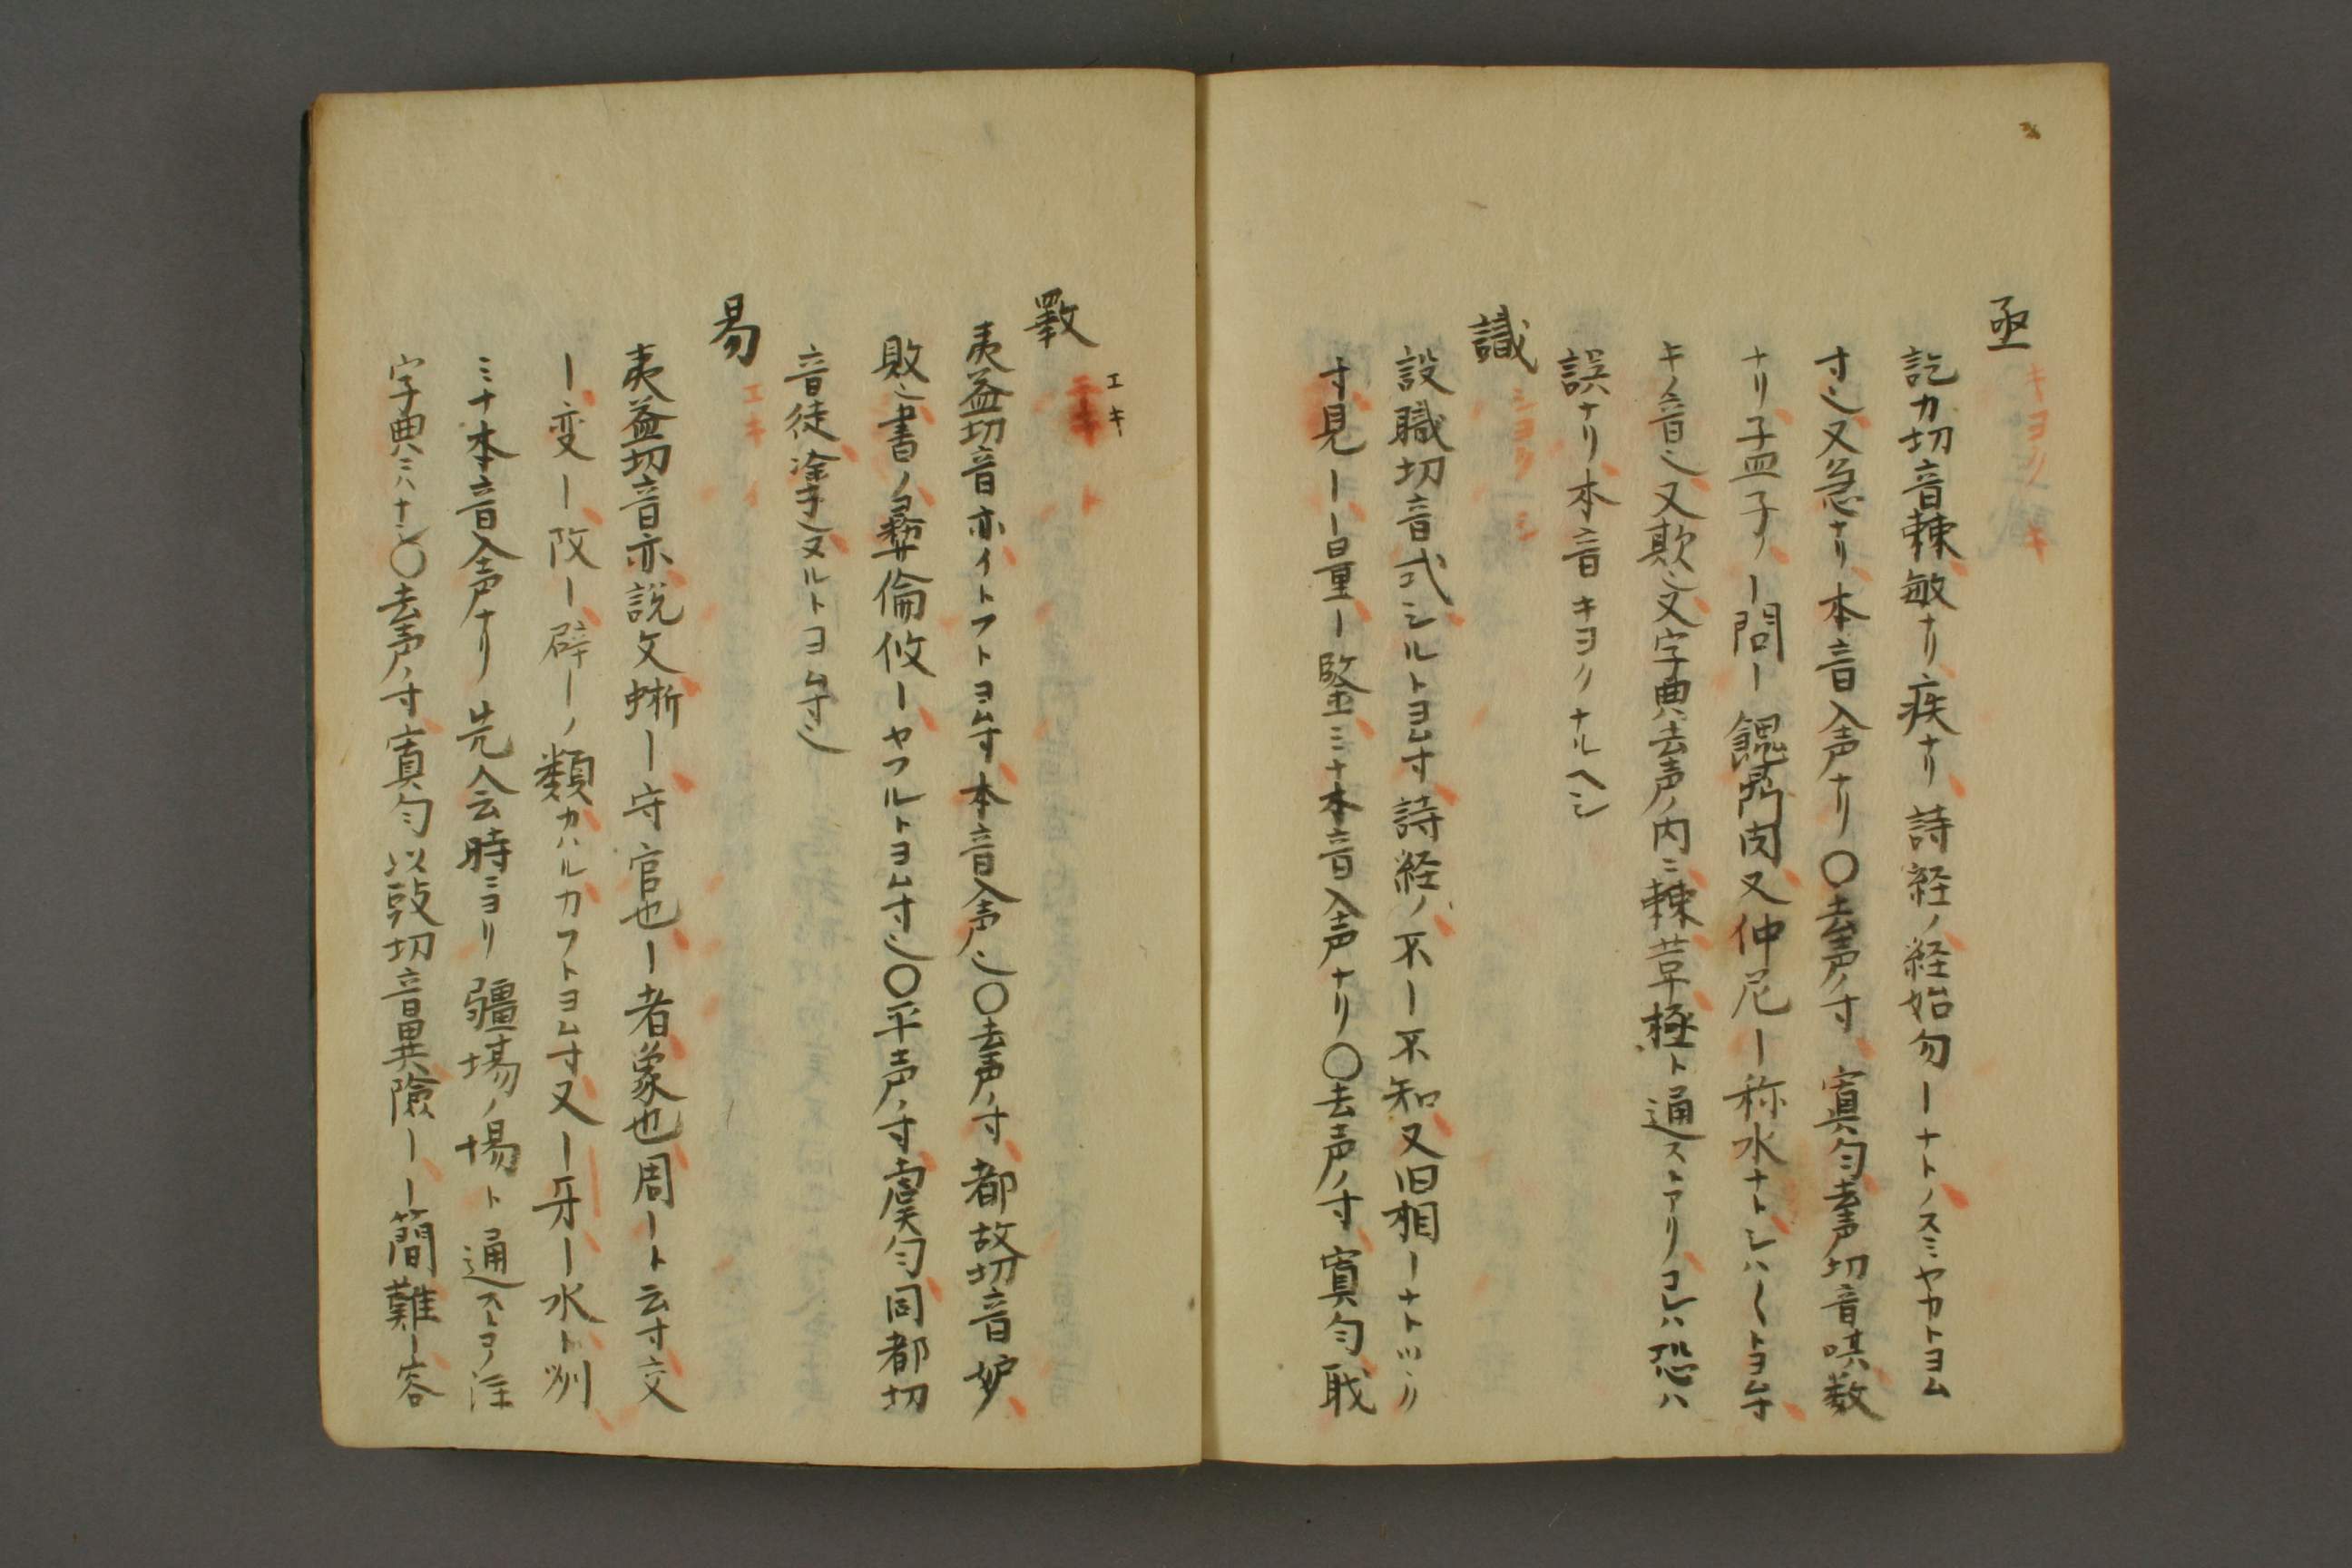 亟 キヨク キ
訖力切音棘敏ナリ疾ナリ詩経ノ経始勿ーナトノスミヤカトヨム
寸也又急ナリ本音入声ナリ〇去声ノ寸寘匀去声切音唭数
ナリ孟子ノー問ー餽鼎肉又仲尼ー称水ナトシハ〱トヨム寸
キノ音也又欺也又字典ハ去声ノ内ニ棘苟極ト通ストアリコレハ恐ハ
誤ナリ本音キヨクナルヘシ
識 シヨク シ
設職切音式シルトヨム寸詩経ノ不ー不知又旧相ーナトツクリ
寸見ーー量ー鑒ミナ本音入声ナリ〇去声ノ寸寘匀職
斁 エキ ト
エキ
夷益切音亦イトフトヨム寸本音入声也〇去声ノ寸都故切音妒
敗也書ノ彛倫攸ーヤフルトヨム寸也〇平声ノ寸虞匀同都切
音徒塗也ヌルトヨム寸也
易 エキ イ
夷益切音亦説文蜥ー守官也ー者象也周ート云寸交
ー変ー改ー辟ーノ類カハルカフトヨム寸又ー牙ー水ト洲
ミナ本音入声ナリ先人云時ニヨリ疆埸ノ埸ト通スコノ注
字典ニハナシ〇去声ノ寸寘匀以豉切音異險ーー簡難ー容